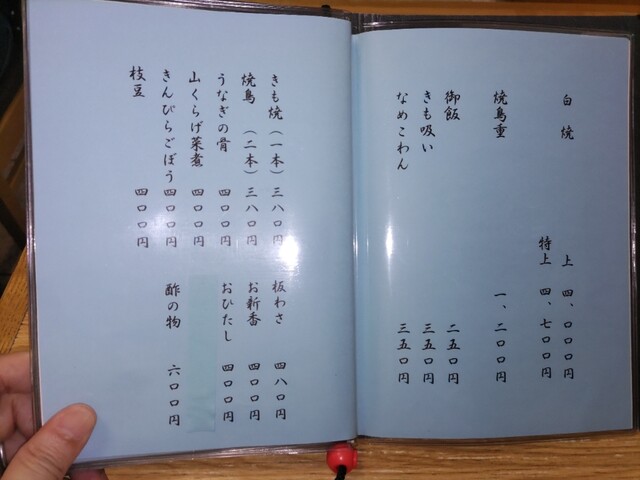 白焼
上 四、〇〇〇円
特上 四、七〇〇円
焼鳥重 一、二〇〇円
御飯 二五〇円
きも吸い 三五〇円
なめこわん 三五〇円
きも焼(一本)三八〇円
焼鳥(二本)三八〇円
うなぎの骨 四〇〇円
山くらげ菜煮 四〇〇円
きんぴらごぼう 四〇〇円
枝豆 四〇〇円
板わさ 四八〇円
お新香 四〇〇円
おひたし 四〇〇円
酢の物 六〇〇円